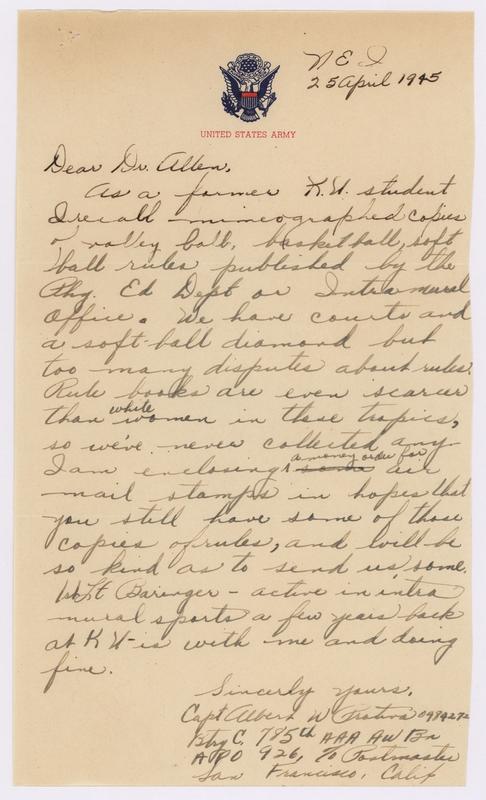 N E I
25 April 1945
UNITED STATES ARMY
Dear Dr. Allen,
As a former K.U. student
I recall mimeographed copies
of volley ball, basketball, soft
ball rules published by the
Phy. Ed Dept or Intramural
Office. We have courts and
a soft-ball diamond but
too many disputes about rules.
Rule books are even scarcer
than white women in these tropics,
so we've never collected any.
I am enclosing a money order for air
mail stamps in hopes that
you still have some of those
copies of rules, and will be
so kind as to send us some.
1st Lt Baringer - active in intra
mural sports a few years back
at K U - is with me and doing
fine.
Sincerely yours,
Capt Albert W
Btry C. 785th AAA AW Bn
APO 926, c/o Postmaster
San Francisco, Calif